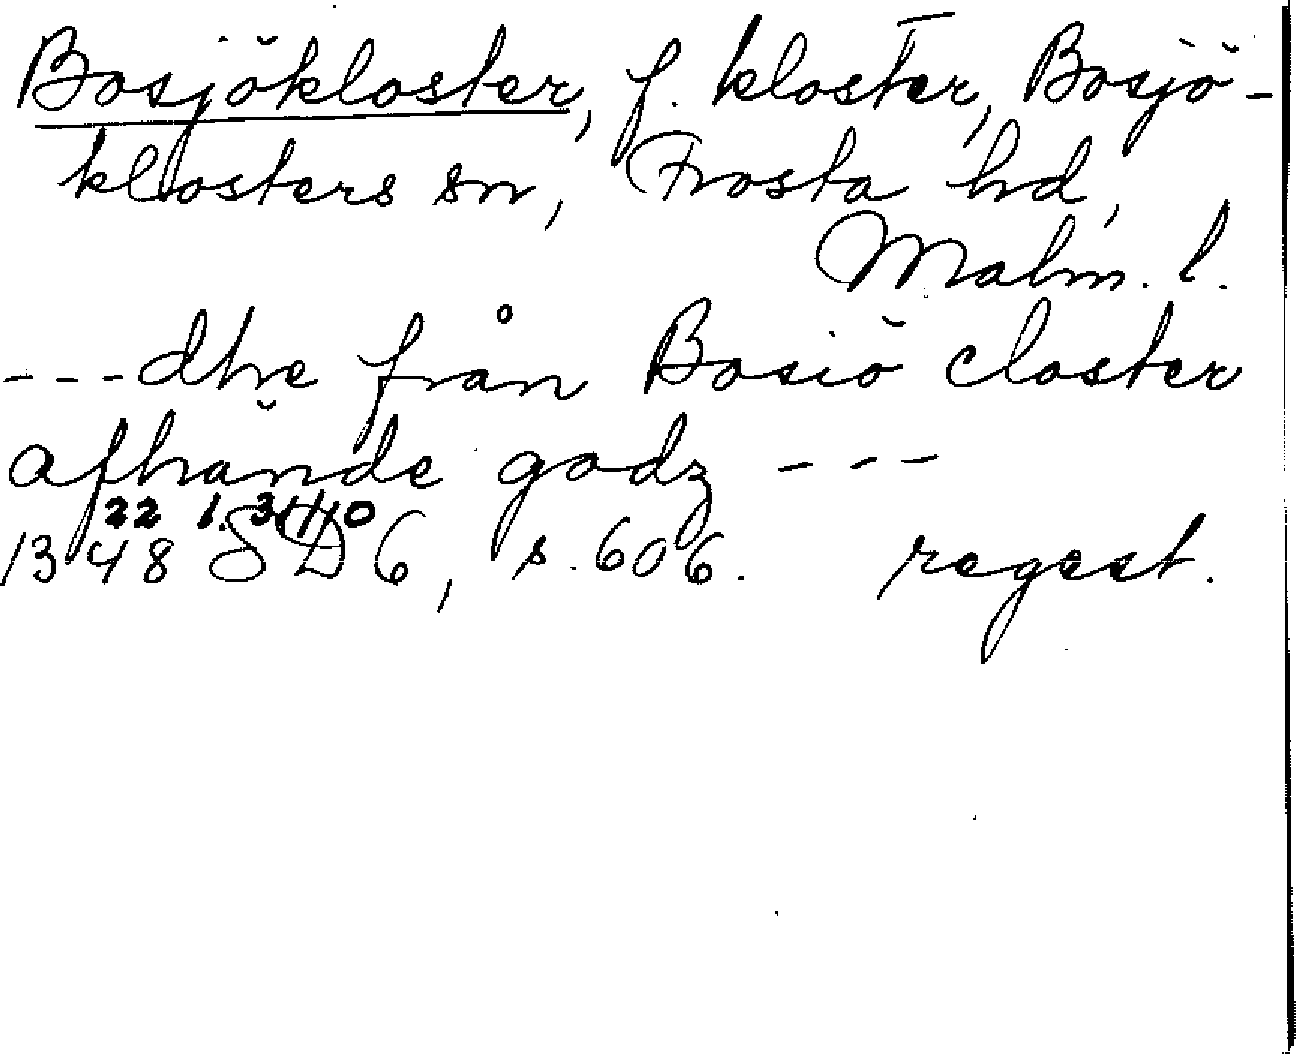 Bosjökloster, f. kloster, Bosjö-
klosters sn, Frosta hd,
Malm. l.
---dhe från Bosiö closter
afhände godz ---
22 1.
1348 SD 6, s. 606. regest.